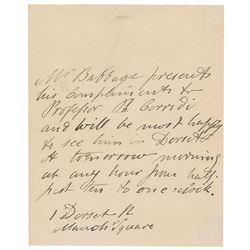 Mr Babbage presents
his compliments to
Professor Ph Corridi
and will be most happy
to see him in Dorset
St tomorrow morning
at any hour from half
past ten to one o'clock.
1 Dorset St
Manch Square